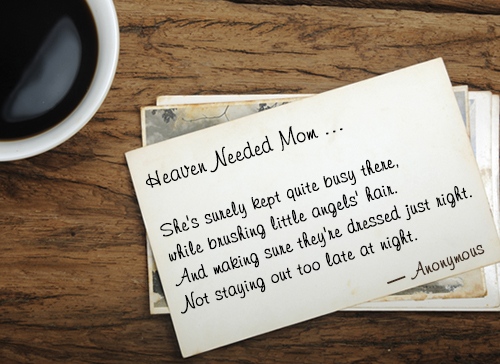 Heaven Needed Mom ...
She's surely kept quite busy there,
while brushing little angels' hair.
And making sure they're dressed just right.
Not staying out too late at night.
— Anonymous